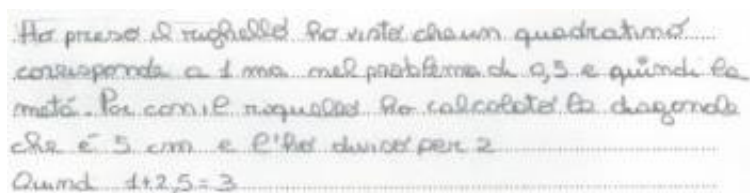 Ho preso il righello ho visto che un quadratino
corrisponde a 1 ma nel problema di 0,5 e quindi la
metá. Poi con il righello ho calcolato la diagonale
che é 5 cm e l'ho diviso per 2
Quind 1+2,5=3